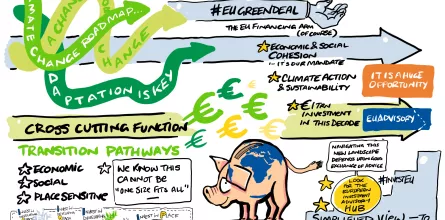 CLIMATE CHANGE ROADMAP...
A CHANGE
CHANGE
ADAPTATION IS KEY
#EUGREENDEAL
THE EU FINANCING ARM
(OF COURSE)
ECONOMIC & SOCIAL
COHESION
IT'S OUR MANDATE
CLIMATE ACTION
& SUSTAINABILITY
IT IS A HUGE
OPPORTUNITY
€1 TRN
INVESTMENT
IN THIS DECADE
EU ADVISORY
CROSS CUTTING FUNCTION
TRANSITION PATHWAYS
ECONOMIC
SOCIAL
PLACE SENSITIVE
WE KNOW THIS
CANNOT BE
"ONE SIZE FITS ALL"
NAVIGATING THIS
NEW LANDSCAPE
DEPENDS UPON GOOD
EXCHANGE OF ADVICE
LOOK
FOR THE
EUROPEAN
INVESTMENT
ADVISORY
HUB
#INVESTEU